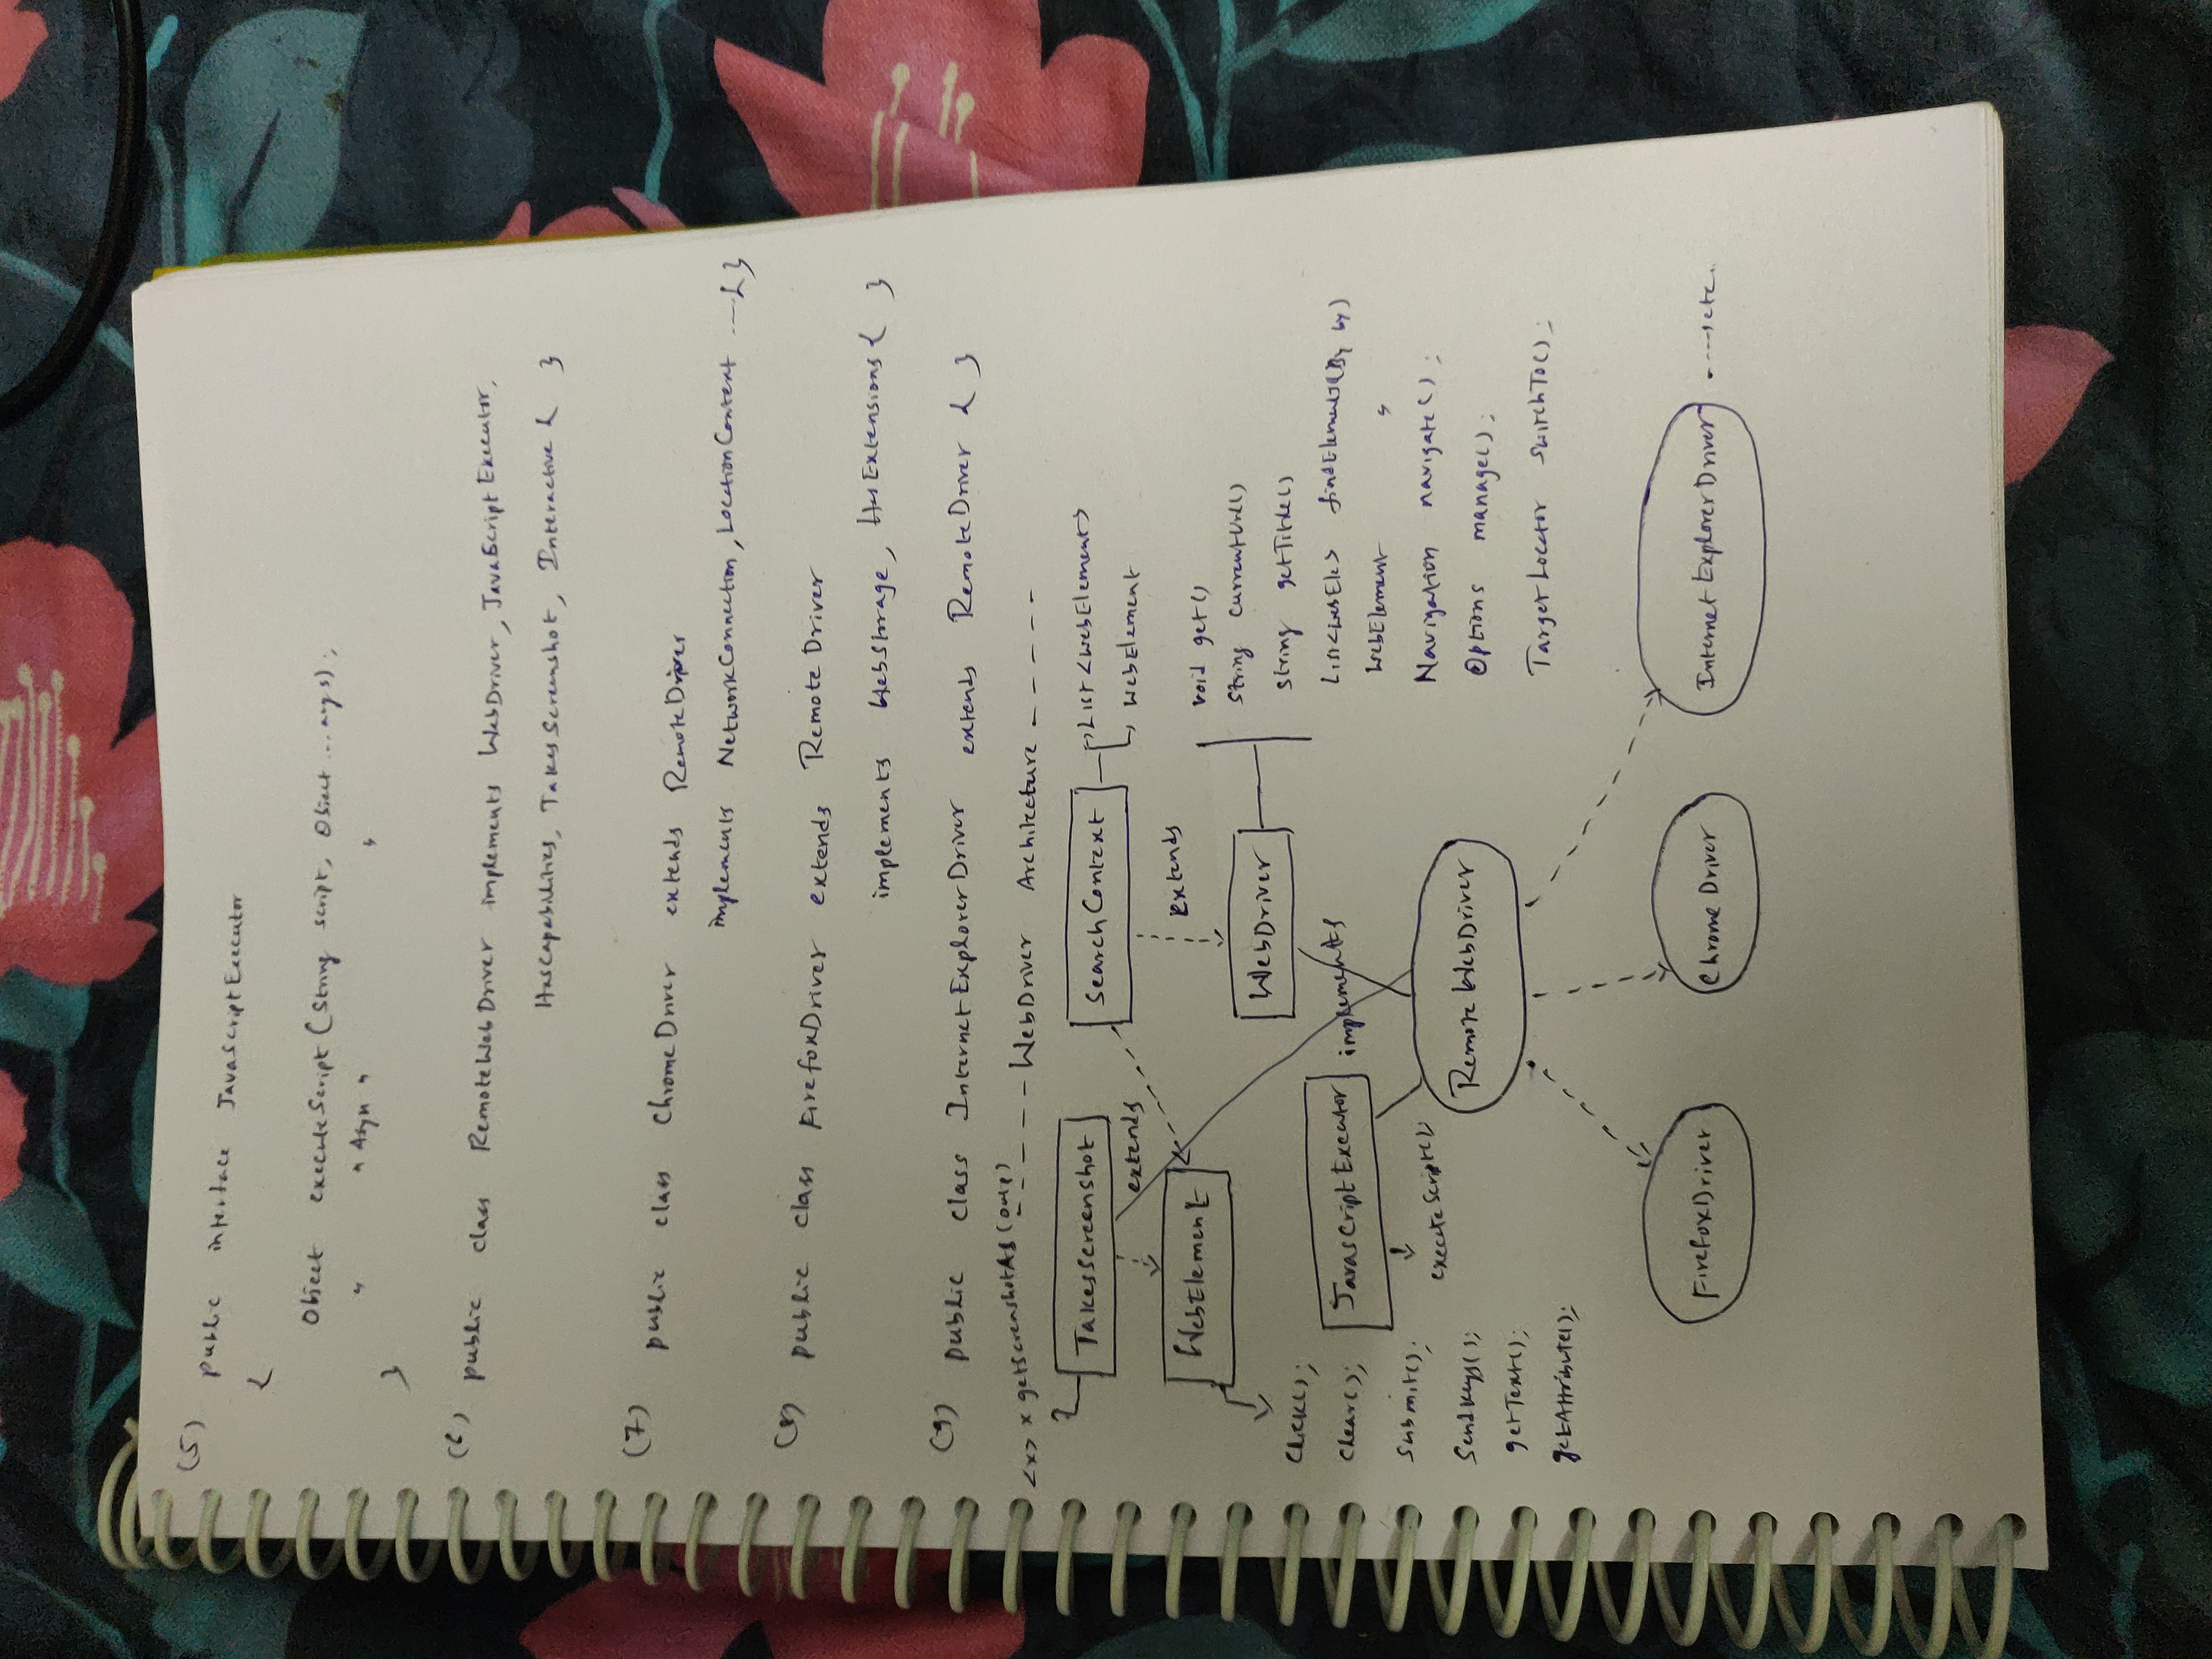 (5) public interface JavaScriptExecutor
{
Object executeScript (String script, Object ... args);
" " Asyn " "
}
(6) public class RemoteWebDriver implements WebDriver, JavaScriptExecutor,
HasCapabilities, TakesScreenshot, Interactive { }
(7) public class ChromeDriver extends RemoteDriver
implements NetworkConnection, LocationContext ---- { }
(8) public class FirefoxDriver extends RemoteDriver
implements WebStorage, HasExtensions { }
(9) public class InternetExplorerDriver extends RemoteDriver { }
<x> x getScreenshotAs ( )
----- WebDriver Architecture -----
TakesScreenshot
SearchContext
List <WebElement>
WebElement
extends
WebElement
extends
WebDriver
void get()
String currentUrl()
String getTitle()
List<WebEle> findElements(By by)
WebElement "
Navigation navigate();
Options manage();
TargetLocator switchTo();
Click();
Clear();
Submit();
Sendkeys();
getText();
getAttribute();
JavaScriptExecutor
implements
executeScript();
RemoteWebDriver
FirefoxDriver
ChromeDriver
InternetExplorerDriver ---- etc.